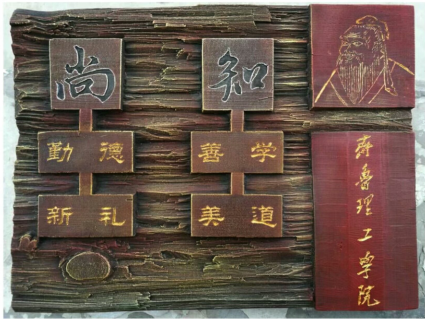 尚 知
勤德 善学
新礼 美道
齐鲁理工学院